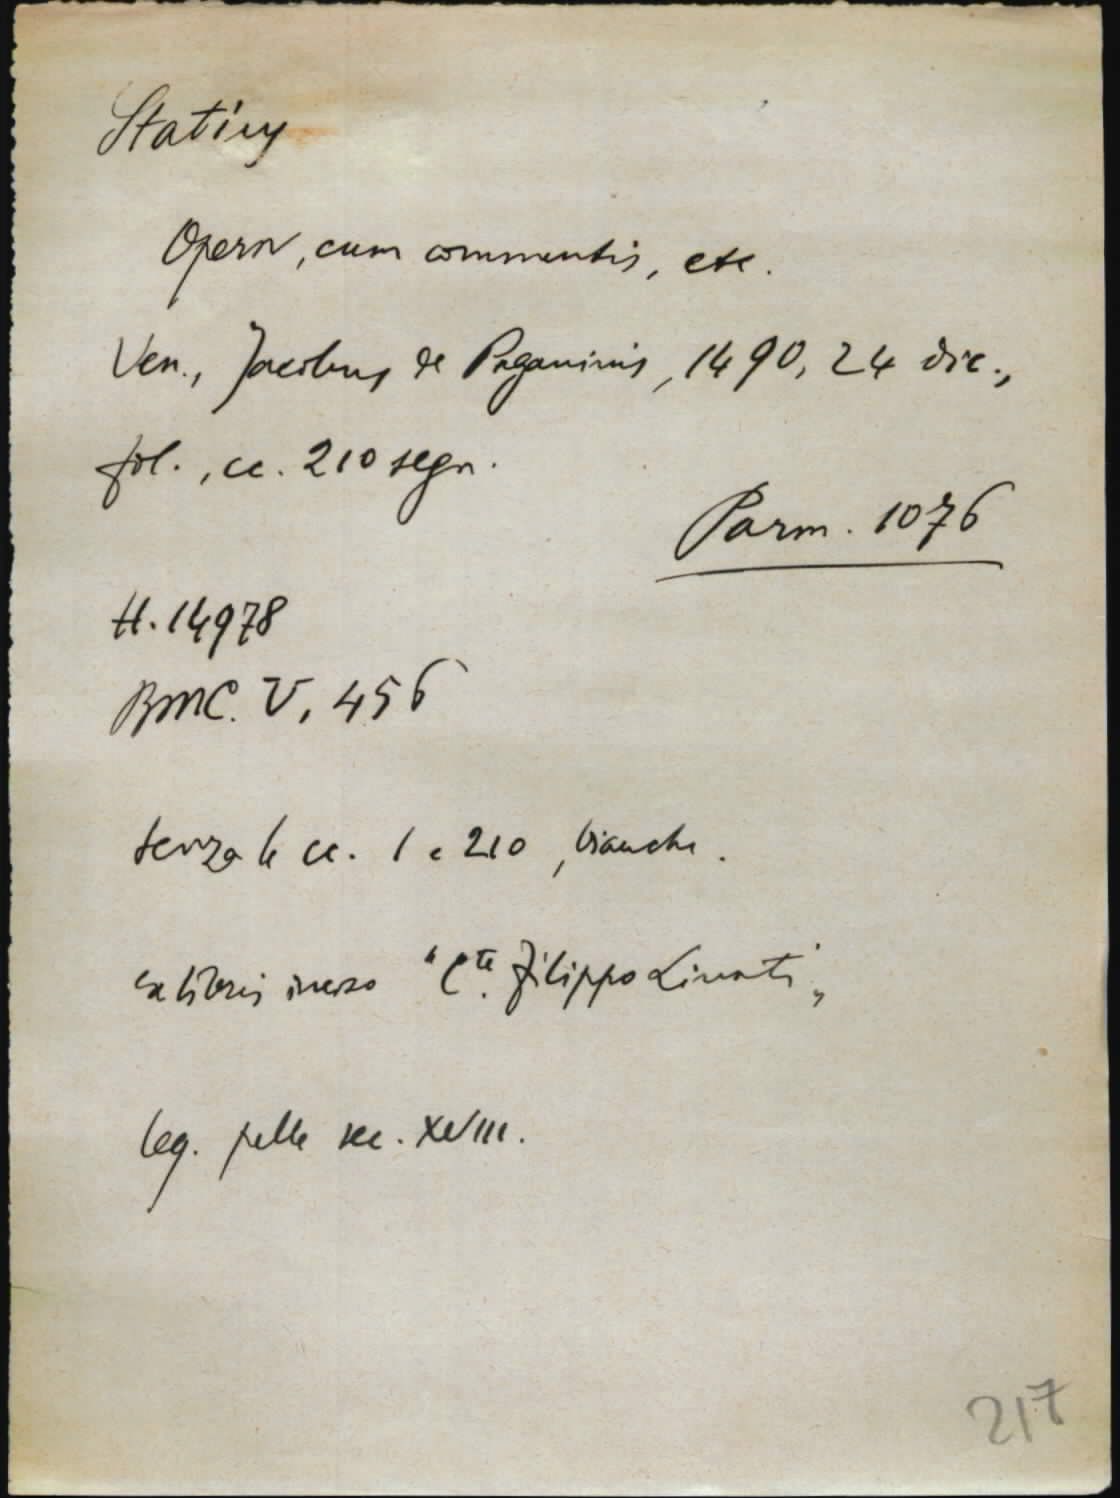 Statius
Opera, cum commentis, etc.
Ven., Jacobus de Paganinis, 1490, 24 dic.,
fol., cc. 210 segn.
Parm. 1076
H. 14978
BMC. V, 456
senza le cc. 1 e 210, bianche.
ex libris inciso "Cte. Filippo Linati„
leg. pelle sec. XVIII.
217